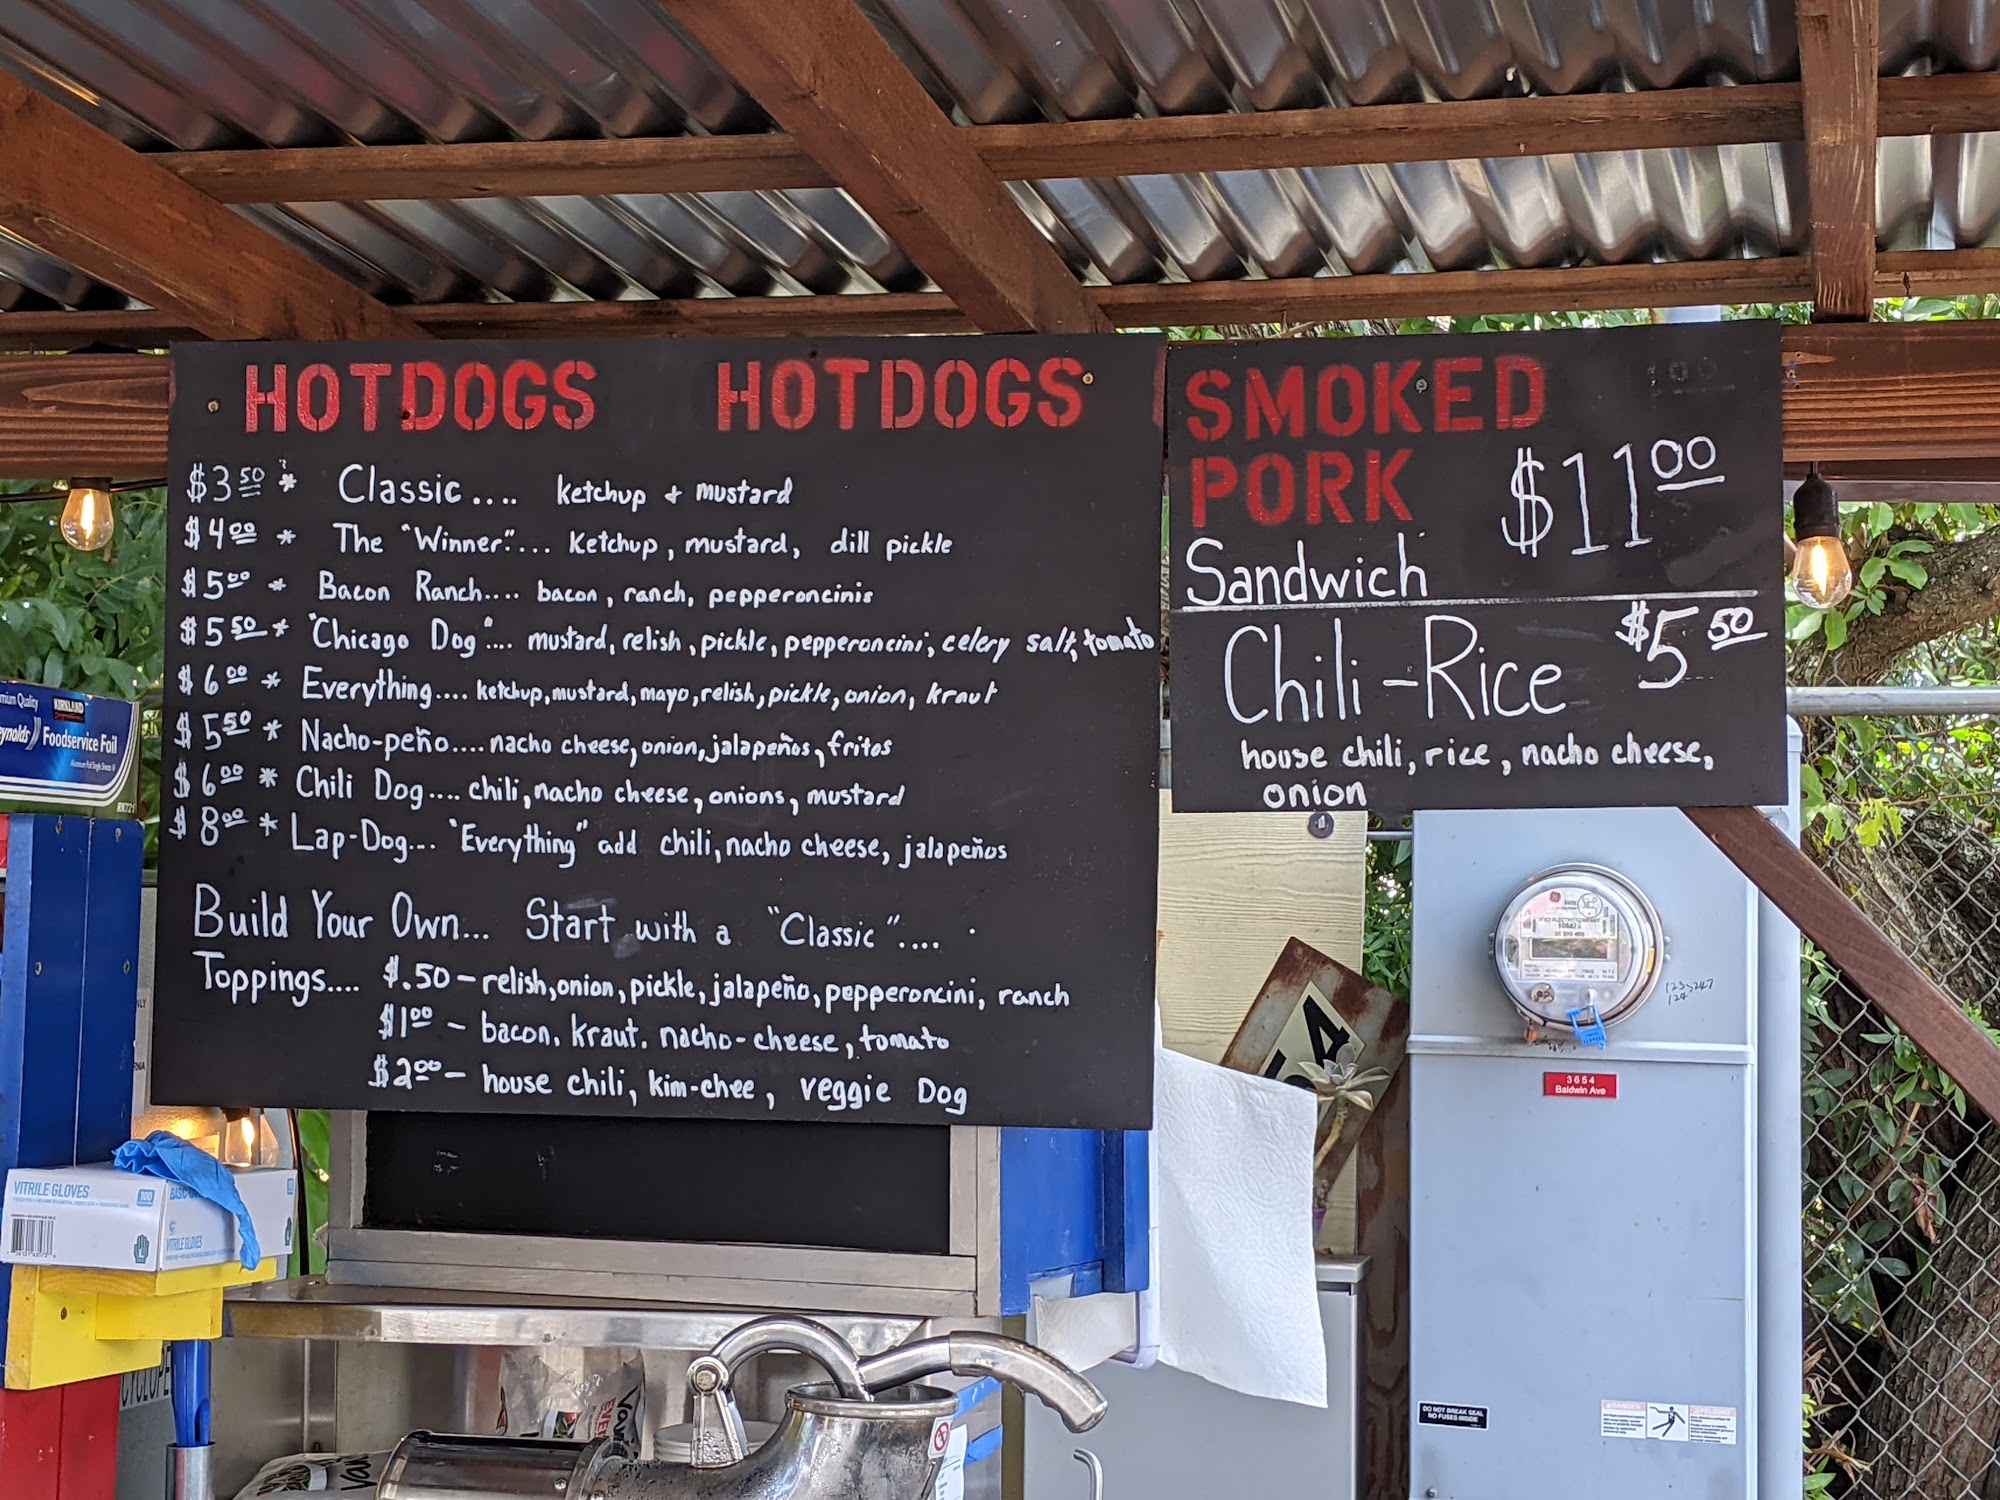 HOTDOGS HOTDOGS
$3.50 * Classic.... ketchup + mustard
$4.00 * The "Winner".... Ketchup, mustard, dill pickle
$5.00 * Bacon Ranch.... bacon, ranch, pepperoncinis
$5.50 * "Chicago Dog".... mustard, relish, pickle, pepperoncini, celery salt, tomato
$6.00 * Everything.... ketchup, mustard, mayo, relish, pickle, onion, kraut
$5.50 * Nacho-peño.... nacho cheese, onion, jalapeños, fritos
$6.00 * Chili Dog.... chili, nacho cheese, onions, mustard
$8.00 * Lap-Dog.... "Everything" add chili, nacho cheese, jalapeños
Build Your Own... Start with a "Classic"....
Toppings.... $.50 - relish, onion, pickle, jalapeño, pepperoncini, ranch
$1.00 - bacon, kraut, nacho-cheese, tomato
$2.00 - house chili, kim-chee, veggie Dog
SMOKED
PORK $11.00
Sandwich
Chili-Rice $5.50
house chili, rice, nacho cheese,
onion
KIRKLAND
Foodservice Foil
VITRILE GLOVES
100
VITRILE GLOVES
3654
Baldwin Ave
DO NOT BREAK SEAL
NO FUSES INSIDE